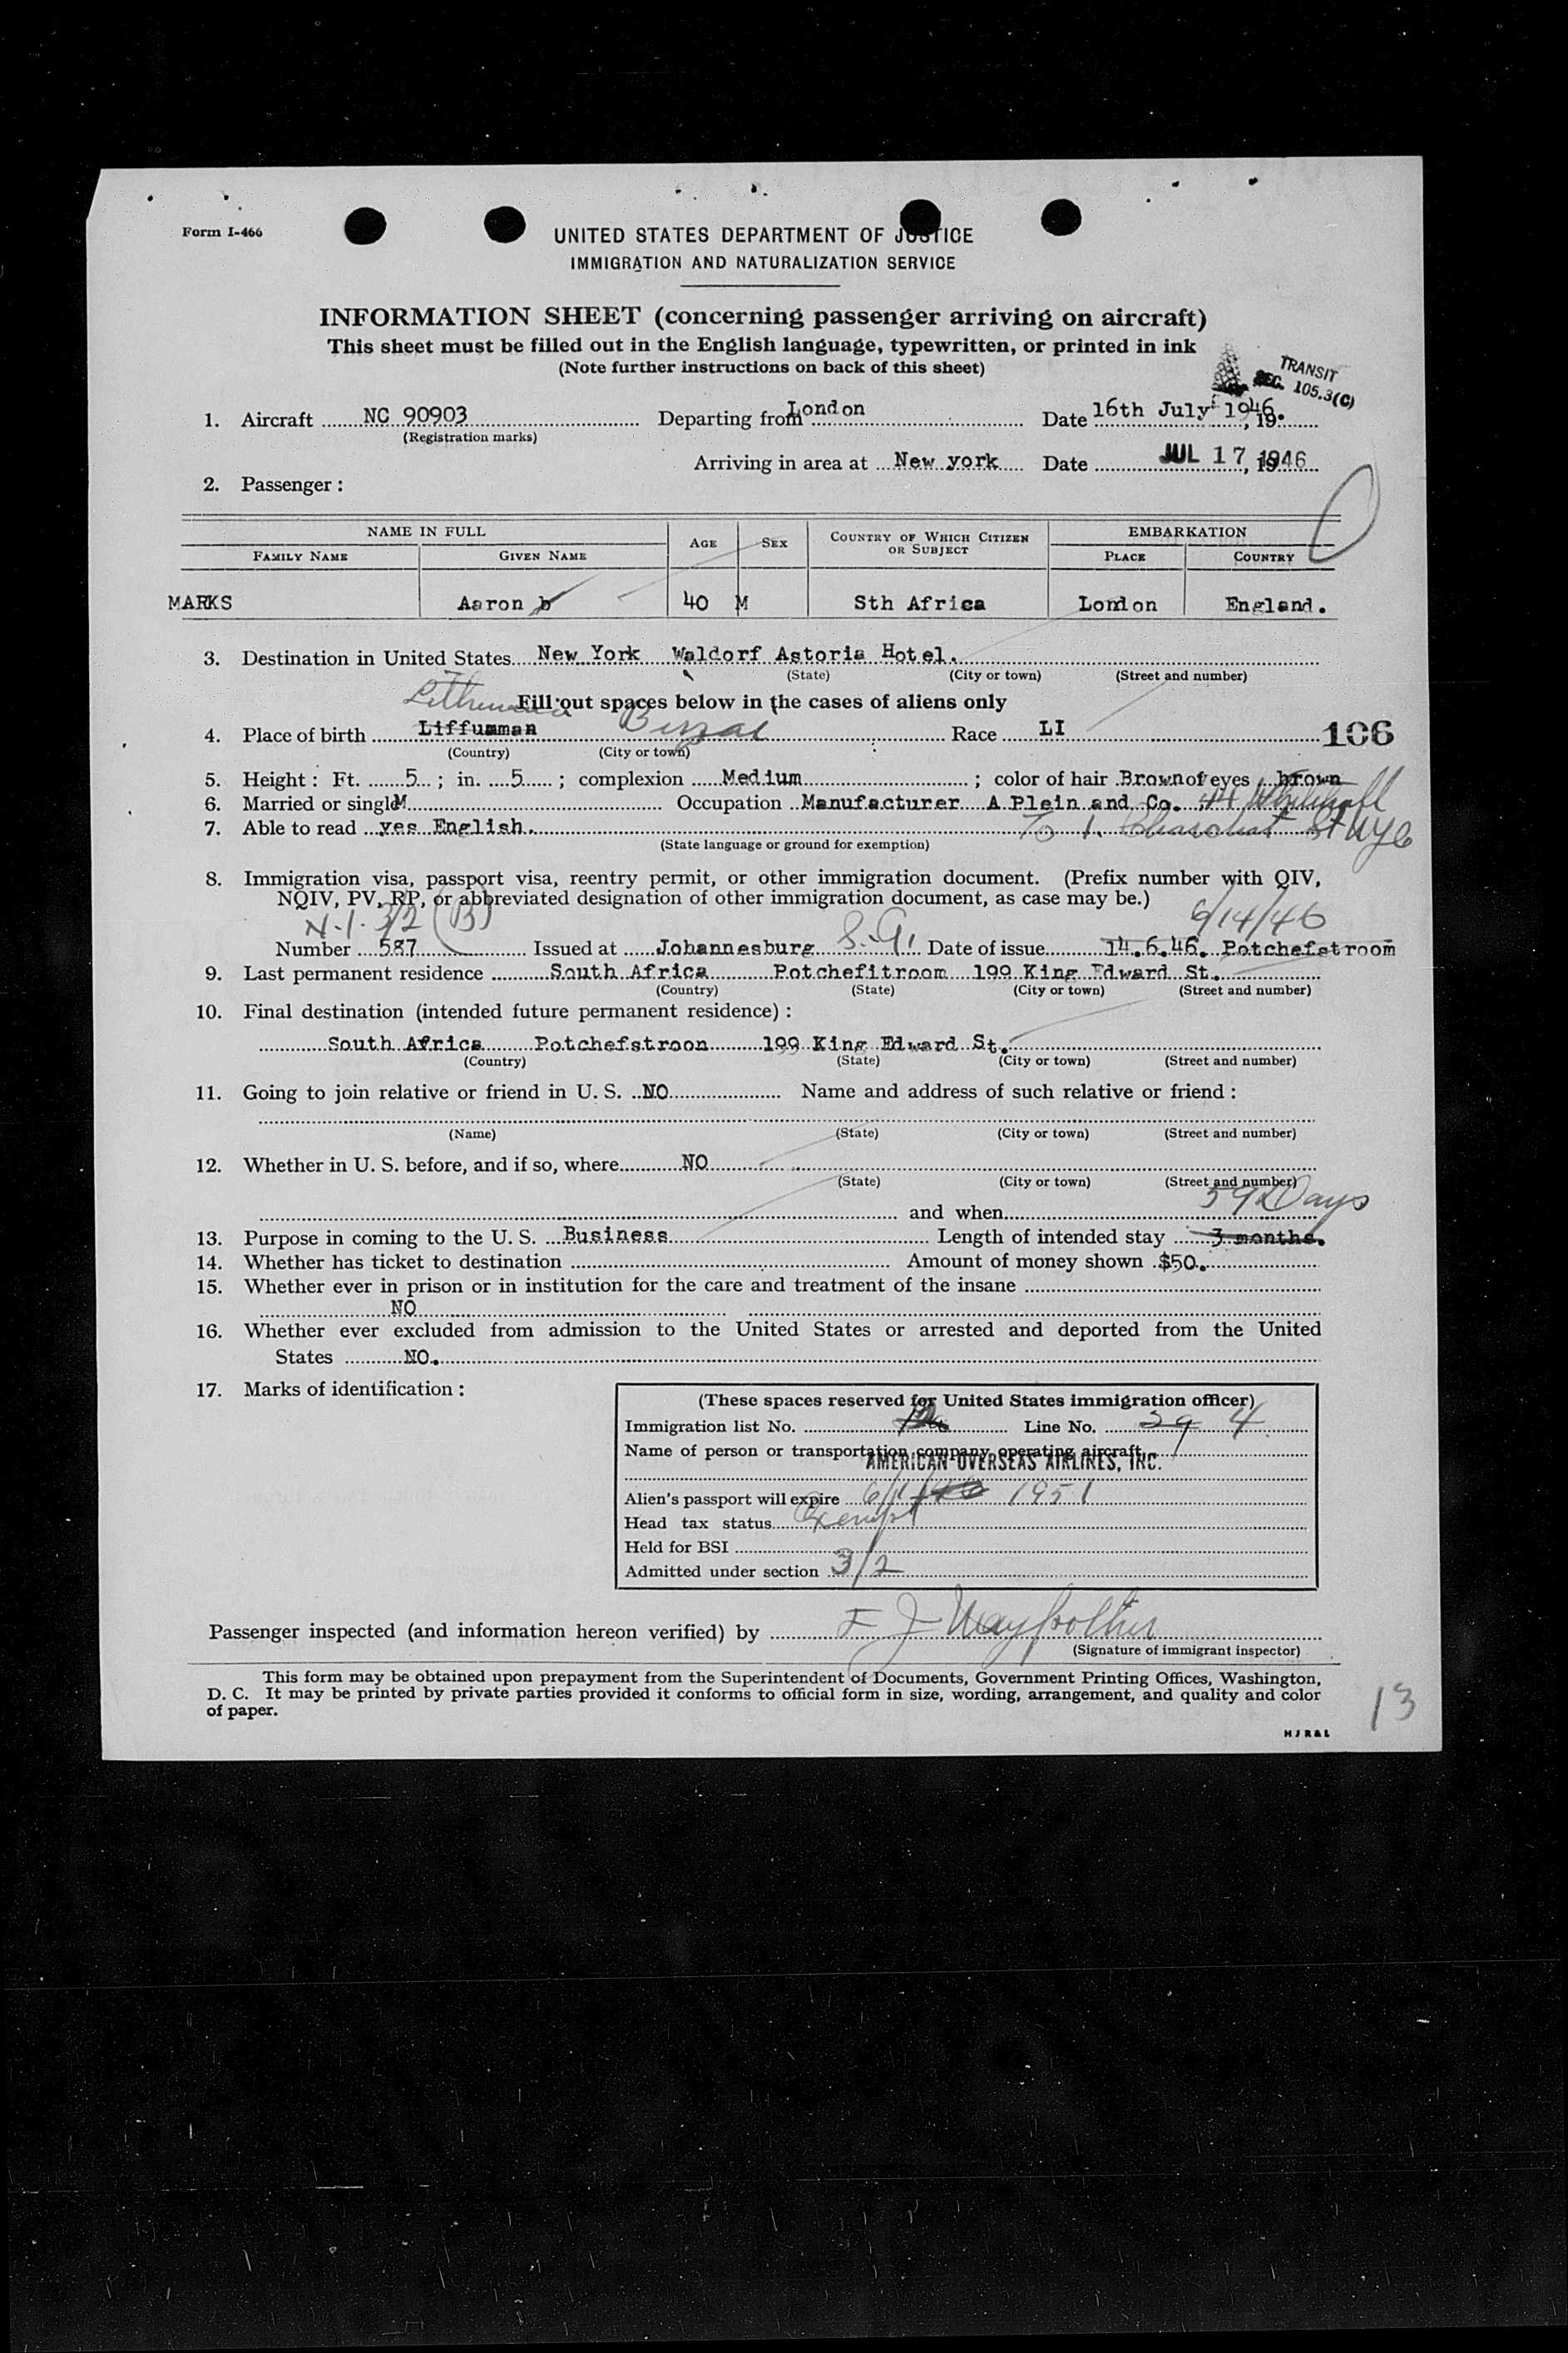 Form I-466
UNITED STATES DEPARTMENT OF JUSTICE
IMMIGRATION AND NATURALIZATION SERVICE
INFORMATION SHEET (concerning passenger arriving on aircraft)
This sheet must be filled out in the English language, typewritten, or printed in ink
(Note further instructions on back of this sheet)
TRANSIT
SEC. 105.3(C)
1. Aircraft NC 90903 Departing from London Date 16th July 1946. , 19
(Registration marks)
Arriving in area at New york Date JUL 17 1946 , 19
2. Passenger :
NAME IN FULL AGE SEX COUNTRY OF WHICH CITIZEN OR SUBJECT EMBARKATION
FAMILY NAME GIVEN NAME PLACE COUNTRY
MARKS Aaron b 40 M Sth Africa London England.
3. Destination in United States New York Waldorf Astoria Hotel.
(State) (City or town) (Street and number)
Lithuania Fill out spaces below in the cases of aliens only
4. Place of birth Liffuaman Birzai Race LI 106
(Country) (City or town)
5. Height : Ft. 5 ; in. 5 ; complexion Medium ; color of hair Brown of eyes brown
6. Married or single M Occupation Manufacturer A Plein and Co. 44 Whitehall
7. Able to read yes English. To 1. St NYC
(State language or ground for exemption)
8. Immigration visa, passport visa, reentry permit, or other immigration document. (Prefix number with QIV,
NQIV, PV, RP, or abbreviated designation of other immigration document, as case may be.)
N.I. 3/2 (B) 6/14/46
Number 587 Issued at Johannesburg S.A. Date of issue 14.6.46. Potchefstroom
9. Last permanent residence South Africa Potchefitroom 199 King Edward St.
(Country) (State) (City or town) (Street and number)
10. Final destination (intended future permanent residence) :
South Africa Potchefstroon 199 King Edward St.
(Country) (State) (City or town) (Street and number)
11. Going to join relative or friend in U. S. NO Name and address of such relative or friend :
(Name) (State) (City or town) (Street and number)
12. Whether in U. S. before, and if so, where NO
(State) (City or town) (Street and number)
and when 59 Days
13. Purpose in coming to the U. S. Business Length of intended stay 3 months.
14. Whether has ticket to destination Amount of money shown $50.
15. Whether ever in prison or in institution for the care and treatment of the insane
NO
16. Whether ever excluded from admission to the United States or arrested and deported from the United
States NO.
17. Marks of identification :
(These spaces reserved for United States immigration officer)
Immigration list No. Line No. 29 4
Name of person or transportation company operating aircraft
AMERICAN OVERSEAS AIRLINES, INC.
Alien's passport will expire 6/11/46 1951
Head tax status Exempt
Held for BSI
Admitted under section 3/2
Passenger inspected (and information hereon verified) by F J
(Signature of immigrant inspector)
This form may be obtained upon prepayment from the Superintendent of Documents, Government Printing Offices, Washington,
D. C. It may be printed by private parties provided it conforms to official form in size, wording, arrangement, and quality and color
of paper.
13
HJR&L